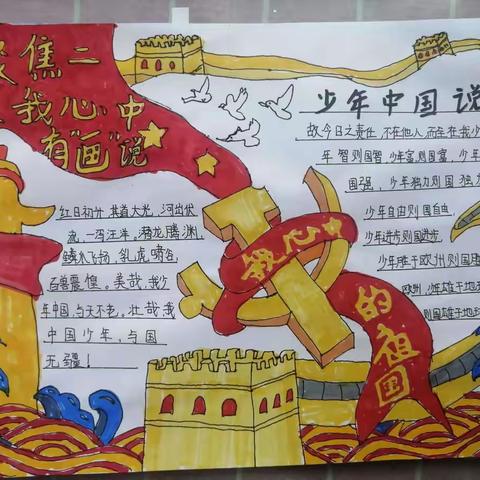 聚焦二
我心中
有“画”说
少年中国说
故今日之责任,不在他人,而在我少
年智则国智,少年富则国富,少年
国强,少年独立则国独立
少年自由则国自由,
少年进步则国进步
少年胜于欧洲则国胜
欧洲,少年雄于地球
则国雄于地球
红日初升,其道大光,河出伏
流,一泻汪洋。潜龙腾渊,
鳞爪飞扬,乳虎啸谷,
百兽震惶。美哉我少
年中国,与天不老。壮哉我
中国少年,与国
无疆!
我心中
的祖国